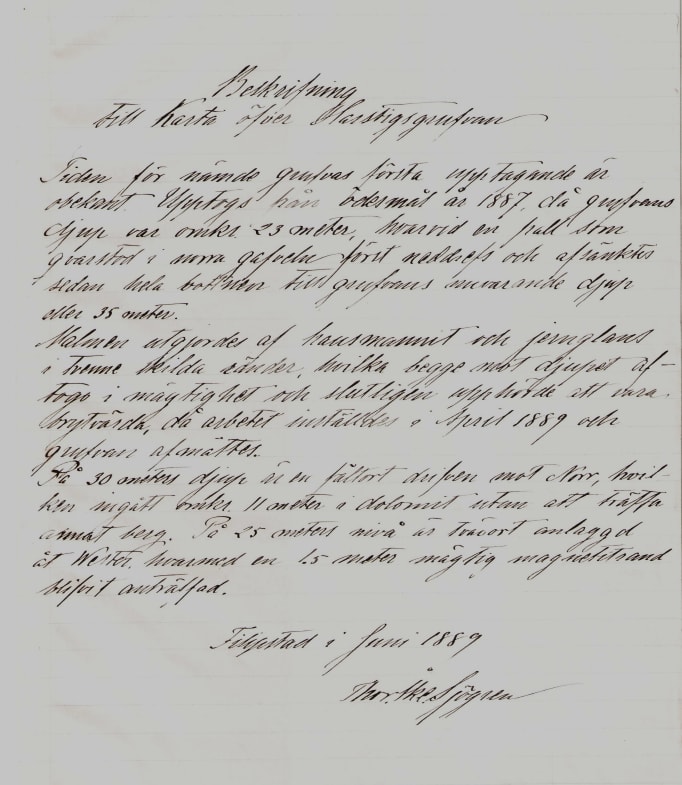 Beskrifning
till Karta öfver Harstigsgrufvan
Tiden för nämde grufvas första upptagande är
obekant. Upptogs från ödesmål år 1887, då grufvans
djup var omkr. 23 meter, hvarvid en pall som
qvarstod i norra gafveln först neddrefs och afsänktes
sedan hela bottnen till grufvans nuvarande djup
eller 35 meter.
Malmen utgjordes af hausmannit och jernglans
i tvenne skilda ränder, hvilka begge mot djupet af-
togo i mägtighet och slutligen upphörde att vara
brytvärda, då arbetet inställdes i April 1889 och
grufvan afmättes.
På 30 meters djup är en fältort drifven mot Norr, hvil-
ken ingått omkr. 11 meter i dolomit utan att träffa
annat berg. På 25 meters nivå är tvärort anlaggd
åt Wester, hvarmed en 1.5 meter mägtig magnetitrand
blifvit anträffad.
Filipstad i Juni 1889
Thor. Åke. Sjögren